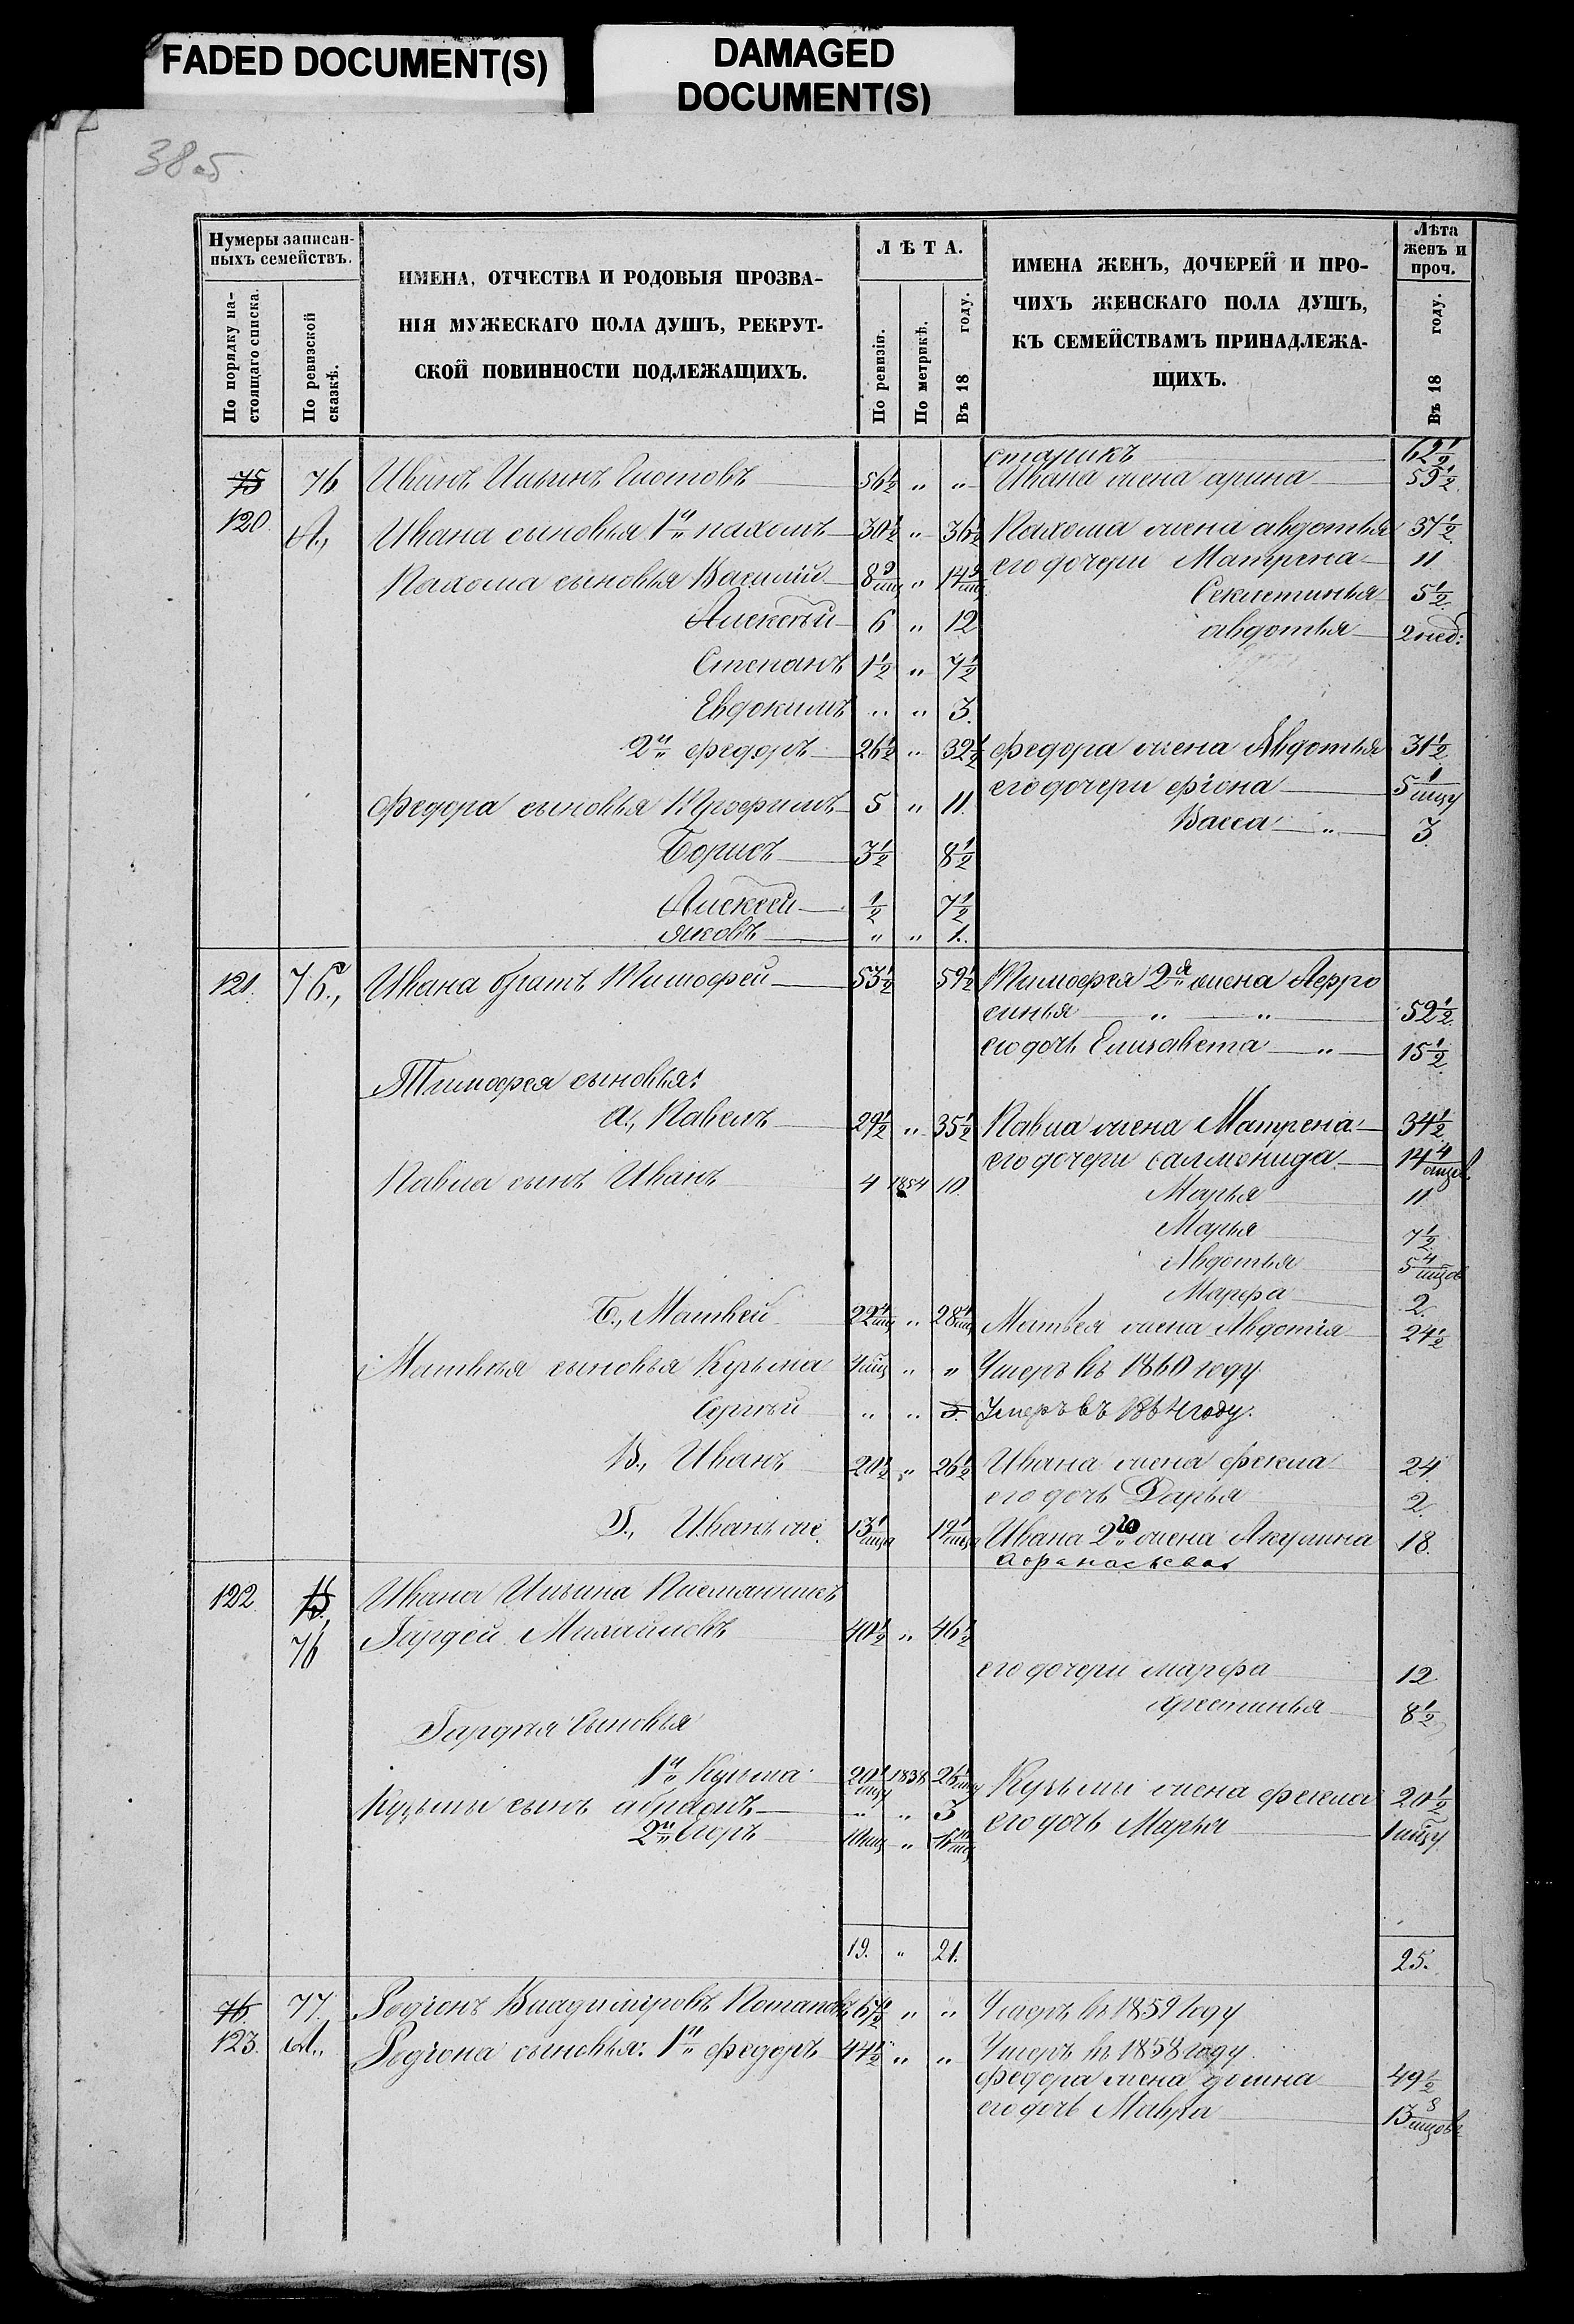 FADED DOCUMENT(S)
DAMAGED
DOCUMENT(S)
38об.
Нумеры записан-
ныхъ семействъ.
По порядку на-
стоящаго списка.
По ревизской
сказкѣ.
ИМЕНА, ОТЧЕСТВА И РОДОВЫЯ ПРОЗВА-
НІЯ МУЖЕСКАГО ПОЛА ДУШЪ, РЕКРУТ-
СКОЙ ПОВИННОСТИ ПОДЛЕЖАЩИХЪ.
ЛѢТА.
По ревизіи.
По метрикѣ.
Въ 18 году.
ИМЕНА ЖЕНЪ, ДОЧЕРЕЙ И ПРО-
ЧИХЪ ЖЕНСКАГО ПОЛА ДУШЪ,
КЪ СЕМЕЙСТВАМЪ ПРИНАДЛЕЖА-
ЩИХЪ.
Лѣта
женъ и
проч.
Въ 18 году.
старикъ 62 1/2
75 76 Иванъ Ильинъ 56 1/2 „ „ Ивана жена арина 59 1/2
120. А., Ивана сыновья 1й пахомъ 30 1/2 „ 36 1/2 Пахома жена авдотья 37 1/2
Пахома сыновья Василій 8 9/мц „ 14 9/мц его дочери Матрена 11
Алексѣй 6 „ 12 Секлетинья 5 1/2
Степанъ 1 1/2 „ 7 1/2 авдотья 2 нед:
Евдокимъ „ „ 3.
2й федоръ 26 1/2 „ 32 1/2 федора жена Авдотья 31 1/2
Федора сыновья 5 „ 11. его дочери фіона 5 1/мцу
Борисъ 3 1/2 8 1/2 Васса „ 3
Алексей 1/2 7 1/2
яковъ „ „ 1.
121. 76., Ивана братъ Тимофей 53 1/2 59 1/2 Тимофея 2я жена Аффро
синья „ „ 52 1/2
его дочь Елизавета „ 15 1/2
Тимофея сыновья:
а., Павелъ 29 1/2 „ 35 1/2 Павла жена Матрена 34 1/2
Павла сынъ Иванъ 4 1854 10 его дочери саломонида 14 4/мцов.
Марья 11
Марья 7 1/2
Авдотья 5 4/мцов
Марфа 2.
Б., Матвей 22 4/мц „ 28 4/мц Матвея жена Авдотія 24 1/2
Матвея сыновья Кузьма 4мц „ „ Умеръ въ 1860 году
Сергѣй „ „ 3. Умеръ въ 1864 году.
В., Иванъ 20 1/2 „ 26 1/2 Ивана жена фекла 24
его дочь Дарья 2.
Г., Иванъ же 13 1/мцу 19 1/мцу Ивана 2го жена Акулина 18.
Афанасьева
122. 75., Ивана Ильина Племянникъ
76 Гардей Михайловъ 40 1/2 „ 46 1/2
его дочери марфа 12
Хрестинья 8 1/2
Гардея Сыновья
1й Кузьма 20 1/мцу 1838 26 1/мцу Кузьмы жена фекла 20 1/2
Кузьмы сынъ абрамъ „ „ 3 его дочь Марья 1 мцу
2й Егоръ 10мц „
19. „ 21. 25.
76. 77. Родіонъ Владиміровъ Потаповъ 67 1/2 „ „ Умеръ въ 1859 году
123. А., Родіона сыновья: 1й федоръ 44 1/2 „ „ Умеръ въ 1858 году.
федора жена домна 49 1/2
его дочь Мавра 13 8/мцовъ